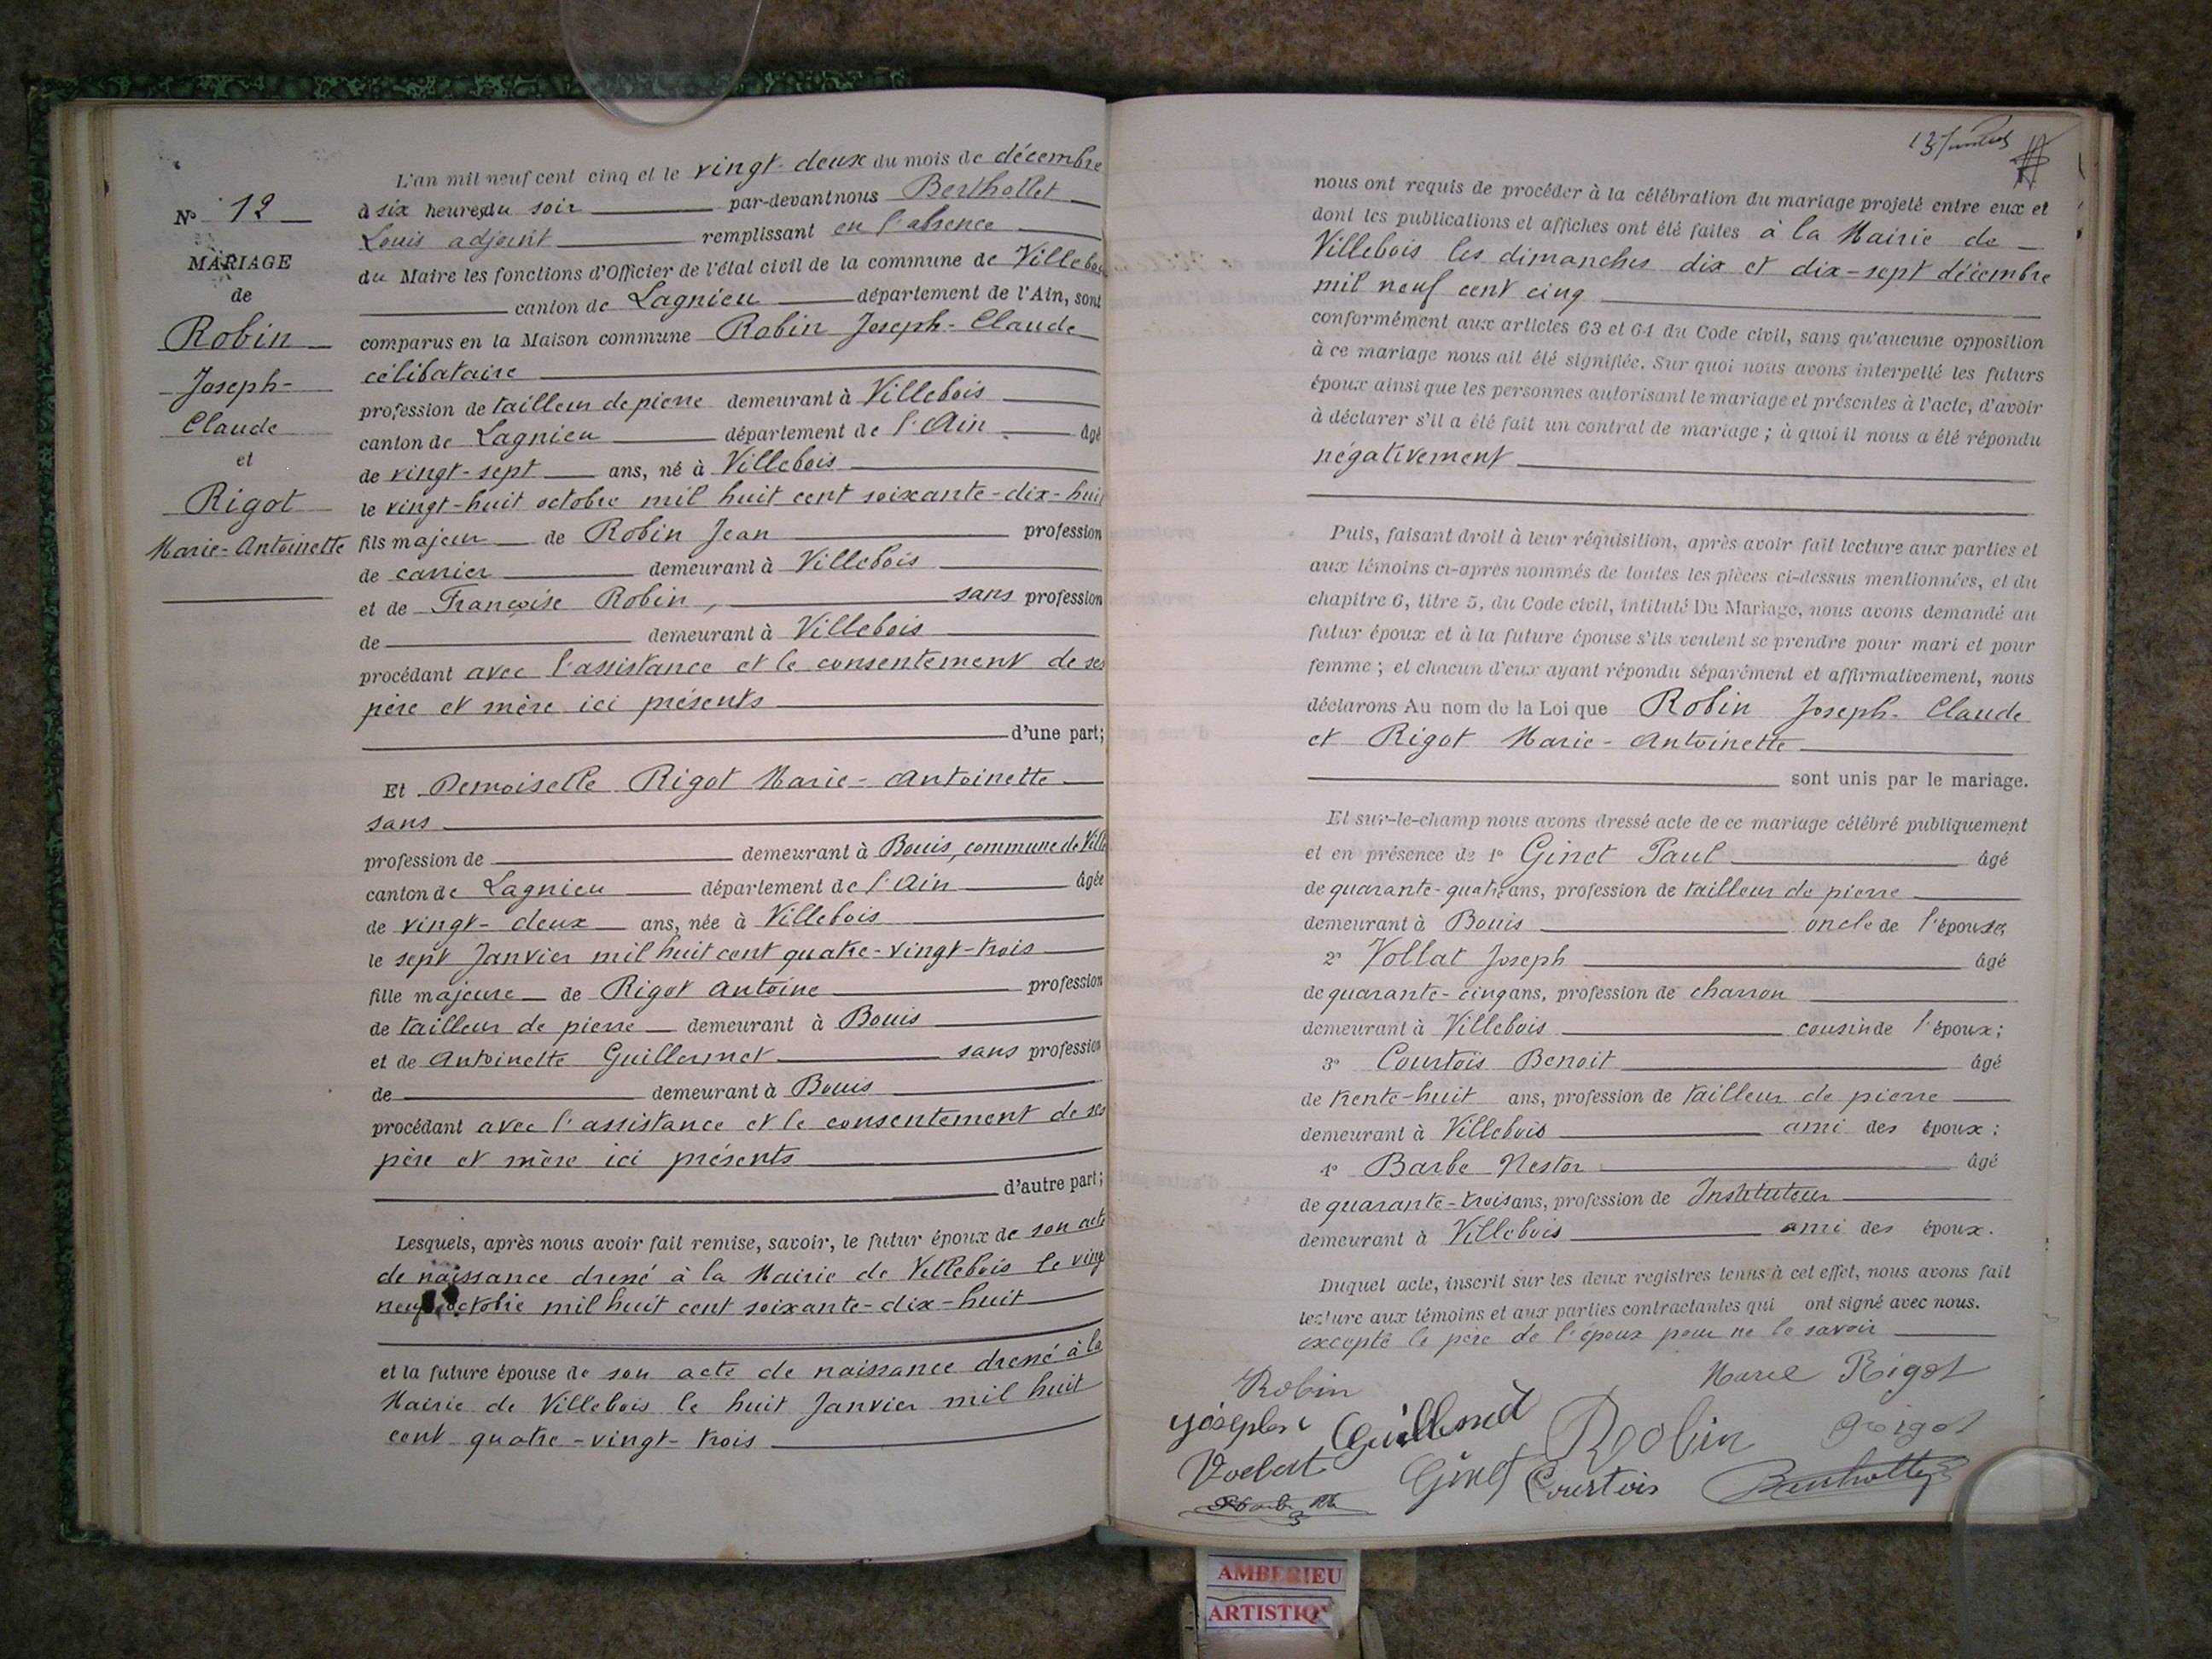 N° 12
MARIAGE
de
Robin
Joseph-
Claude
et
Rigot
Marie-Antoinette
L'an mil neuf cent cinq et le vingt-deux du mois de décembre
à six heures du soir par-devant nous Berthollet
Louis adjoint remplissant en l'absence
du Maire les fonctions d'Officier de l'état civil de la commune de Villebois
canton de Lagnieu département de l'Ain, sont
comparus en la Maison commune Robin Joseph-Claude
célibataire
profession de tailleur de pierre demeurant à Villebois
canton de Lagnieu département de l'Ain âgé
de vingt-sept ans, né à Villebois
le vingt-huit octobre mil huit cent soixante-dix-huit
fils majeur de Robin Jean profession
de carrier demeurant à Villebois
et de Françoise Robin, sans profession
de demeurant à Villebois
procédant avec l'assistance et le consentement de ses
père et mère ici présents
d'une part;
Et Demoiselle Rigot Marie-Antoinette
sans
profession de demeurant à Bouis, commune de Ville
canton de Lagnieu département de l'Ain âgée
de vingt-deux ans, née à Villebois
le sept Janvier mil huit cent quatre-vingt-trois
fille majeure de Rigot Antoine profession
de tailleur de pierre demeurant à Bouis
et de Antoinette Guillermet sans profession
de demeurant à Bouis
procédant avec l'assistance et le consentement de ses
père et mère ici présents
d'autre part;
Lesquels, après nous avoir fait remise, savoir, le futur époux de son acte
de naissance dressé à la Mairie de Villebois le vingt
neuf octobre mil huit cent soixante-dix-huit
et la future épouse de son acte de naissance dressé à la
Mairie de Villebois le huit Janvier mil huit
cent quatre-vingt-trois
nous ont requis de procéder à la célébration du mariage projeté entre eux et
dont les publications et affiches ont été faites à la Mairie de
Villebois les dimanches dix et dix-sept décembre
mil neuf cent cinq
conformément aux articles 63 et 64 du Code civil, sans qu'aucune opposition
à ce mariage nous ait été signifiée. Sur quoi nous avons interpellé les futurs
époux ainsi que les personnes autorisant le mariage et présentes à l'acte, d'avoir
à déclarer s'il a été fait un contrat de mariage; à quoi il nous a été répondu
négativement
Puis, faisant droit à leur réquisition, après avoir fait lecture aux parties et
aux témoins ci-après nommés de toutes les pièces ci-dessus mentionnées, et du
chapitre 6, titre 5, du Code civil, intitulé Du Mariage, nous avons demandé au
futur époux et à la future épouse s'ils veulent se prendre pour mari et pour
femme; et chacun d'eux ayant répondu séparément et affirmativement, nous
déclarons Au nom de la Loi que Robin Joseph-Claude
et Rigot Marie-Antoinette
sont unis par le mariage.
Et sur-le-champ nous avons dressé acte de ce mariage célébré publiquement
et en présence de 1° Ginet Paul âgé
de quarante-quatre ans, profession de tailleur de pierre
demeurant à Bouis oncle de l'épouse;
2° Vollat Joseph âgé
de quarante-cinq ans, profession de charron
demeurant à Villebois cousin de l'époux;
3° Courtois Benoit âgé
de trente-huit ans, profession de tailleur de pierre
demeurant à Villebois ami des époux;
4° Barbe Nestor âgé
de quarante-trois ans, profession de Instituteur
demeurant à Villebois ami des époux.
Duquel acte, inscrit sur les deux registres tenus à cet effet, nous avons fait
lecture aux témoins et aux parties contractantes qui ont signé avec nous.
excepté le père de l'époux pour ne le savoir
Robin
Rigot
Joseph
Robin
Rigot
Ginet
Courtois
AMBERIEU
ARTISTIQ